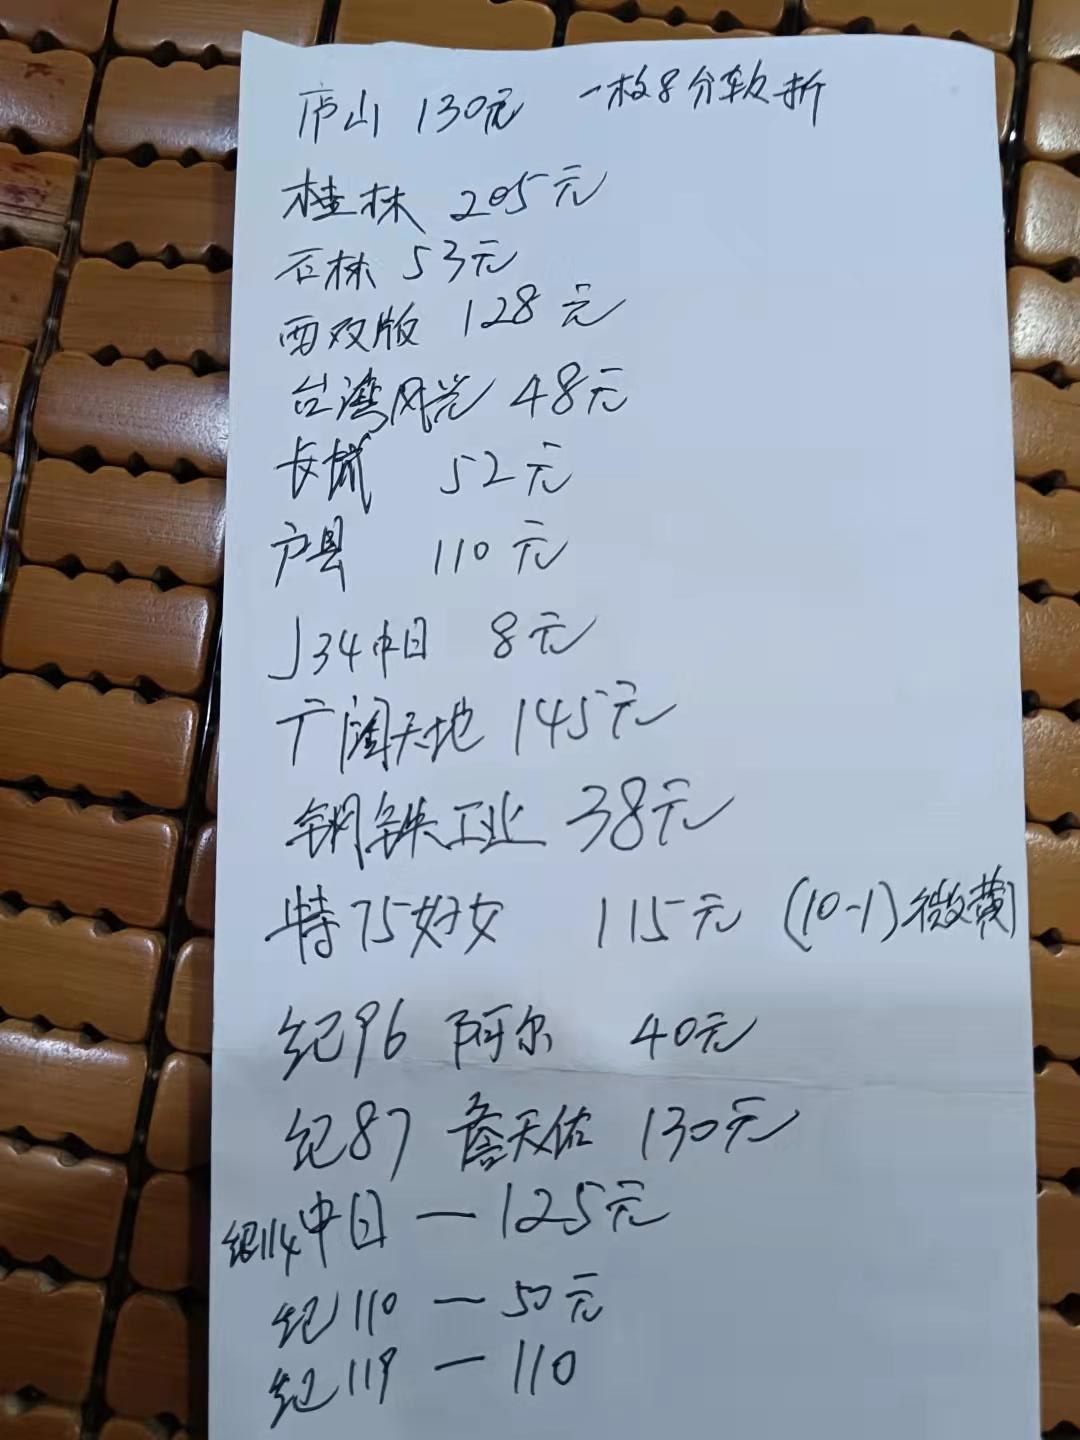 庐山 130元 一枚8分软折
桂林 205元
石林 53元
西双版 128元
台湾风光 48元
长城 52元
户县 110元
J34中日 8元
广阔天地 145元
钢铁工业 38元
特75妇女 115元 (10-1)微黄
纪96 阿尔 40元
纪87 詹天佑 130元
纪114中日一125元
纪110 一 50元
纪119 一 110